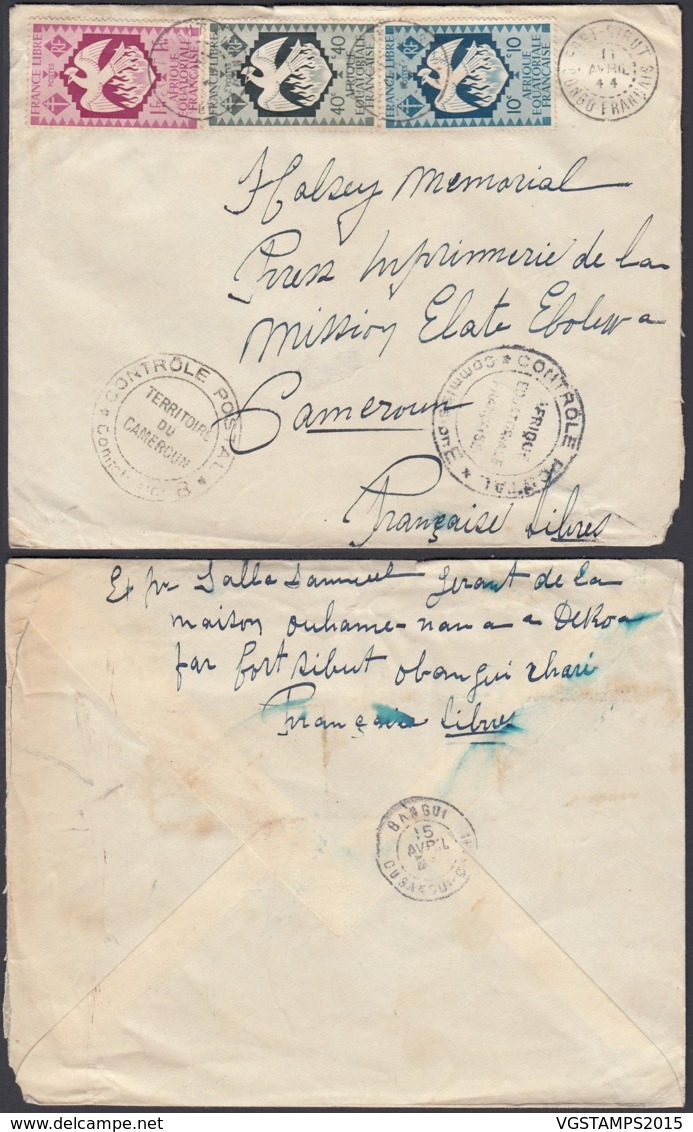 FRANCE LIBRE
POSTES
RF
1F
AFRIQUE
EQUATORIALE
FRANÇAISE
FRANCE LIBRE
POSTES
RF
40
40c
AFRIQUE
EQUATORIALE
FRANÇAISE
FRANCE LIBRE
POSTES
RF
10
10c
AFRIQUE
EQUATORIALE
FRANÇAISE
FORT-SIBUT
11
AVRIL
44
CONGO FRANÇAIS
Halsey Memorial
Press Imprimerie de la
Mission Elate Ebolowa
Cameroun
Française Libres
CONTRÔLE POSTAL
TERRITOIRE
DU
CAMEROUN
Commission B
CONTRÔLE POSTAL
AFRIQUE
EQUATORIALE
FRANÇAISE
Commission E
Exp Salla Samuel Gerant de la
maison ouhame-nana a Dekoa
par fort sibut obangui chari
Française Libres
BANGUI
15
AVRIL
OUBANGUI
VGSTAMPS2015